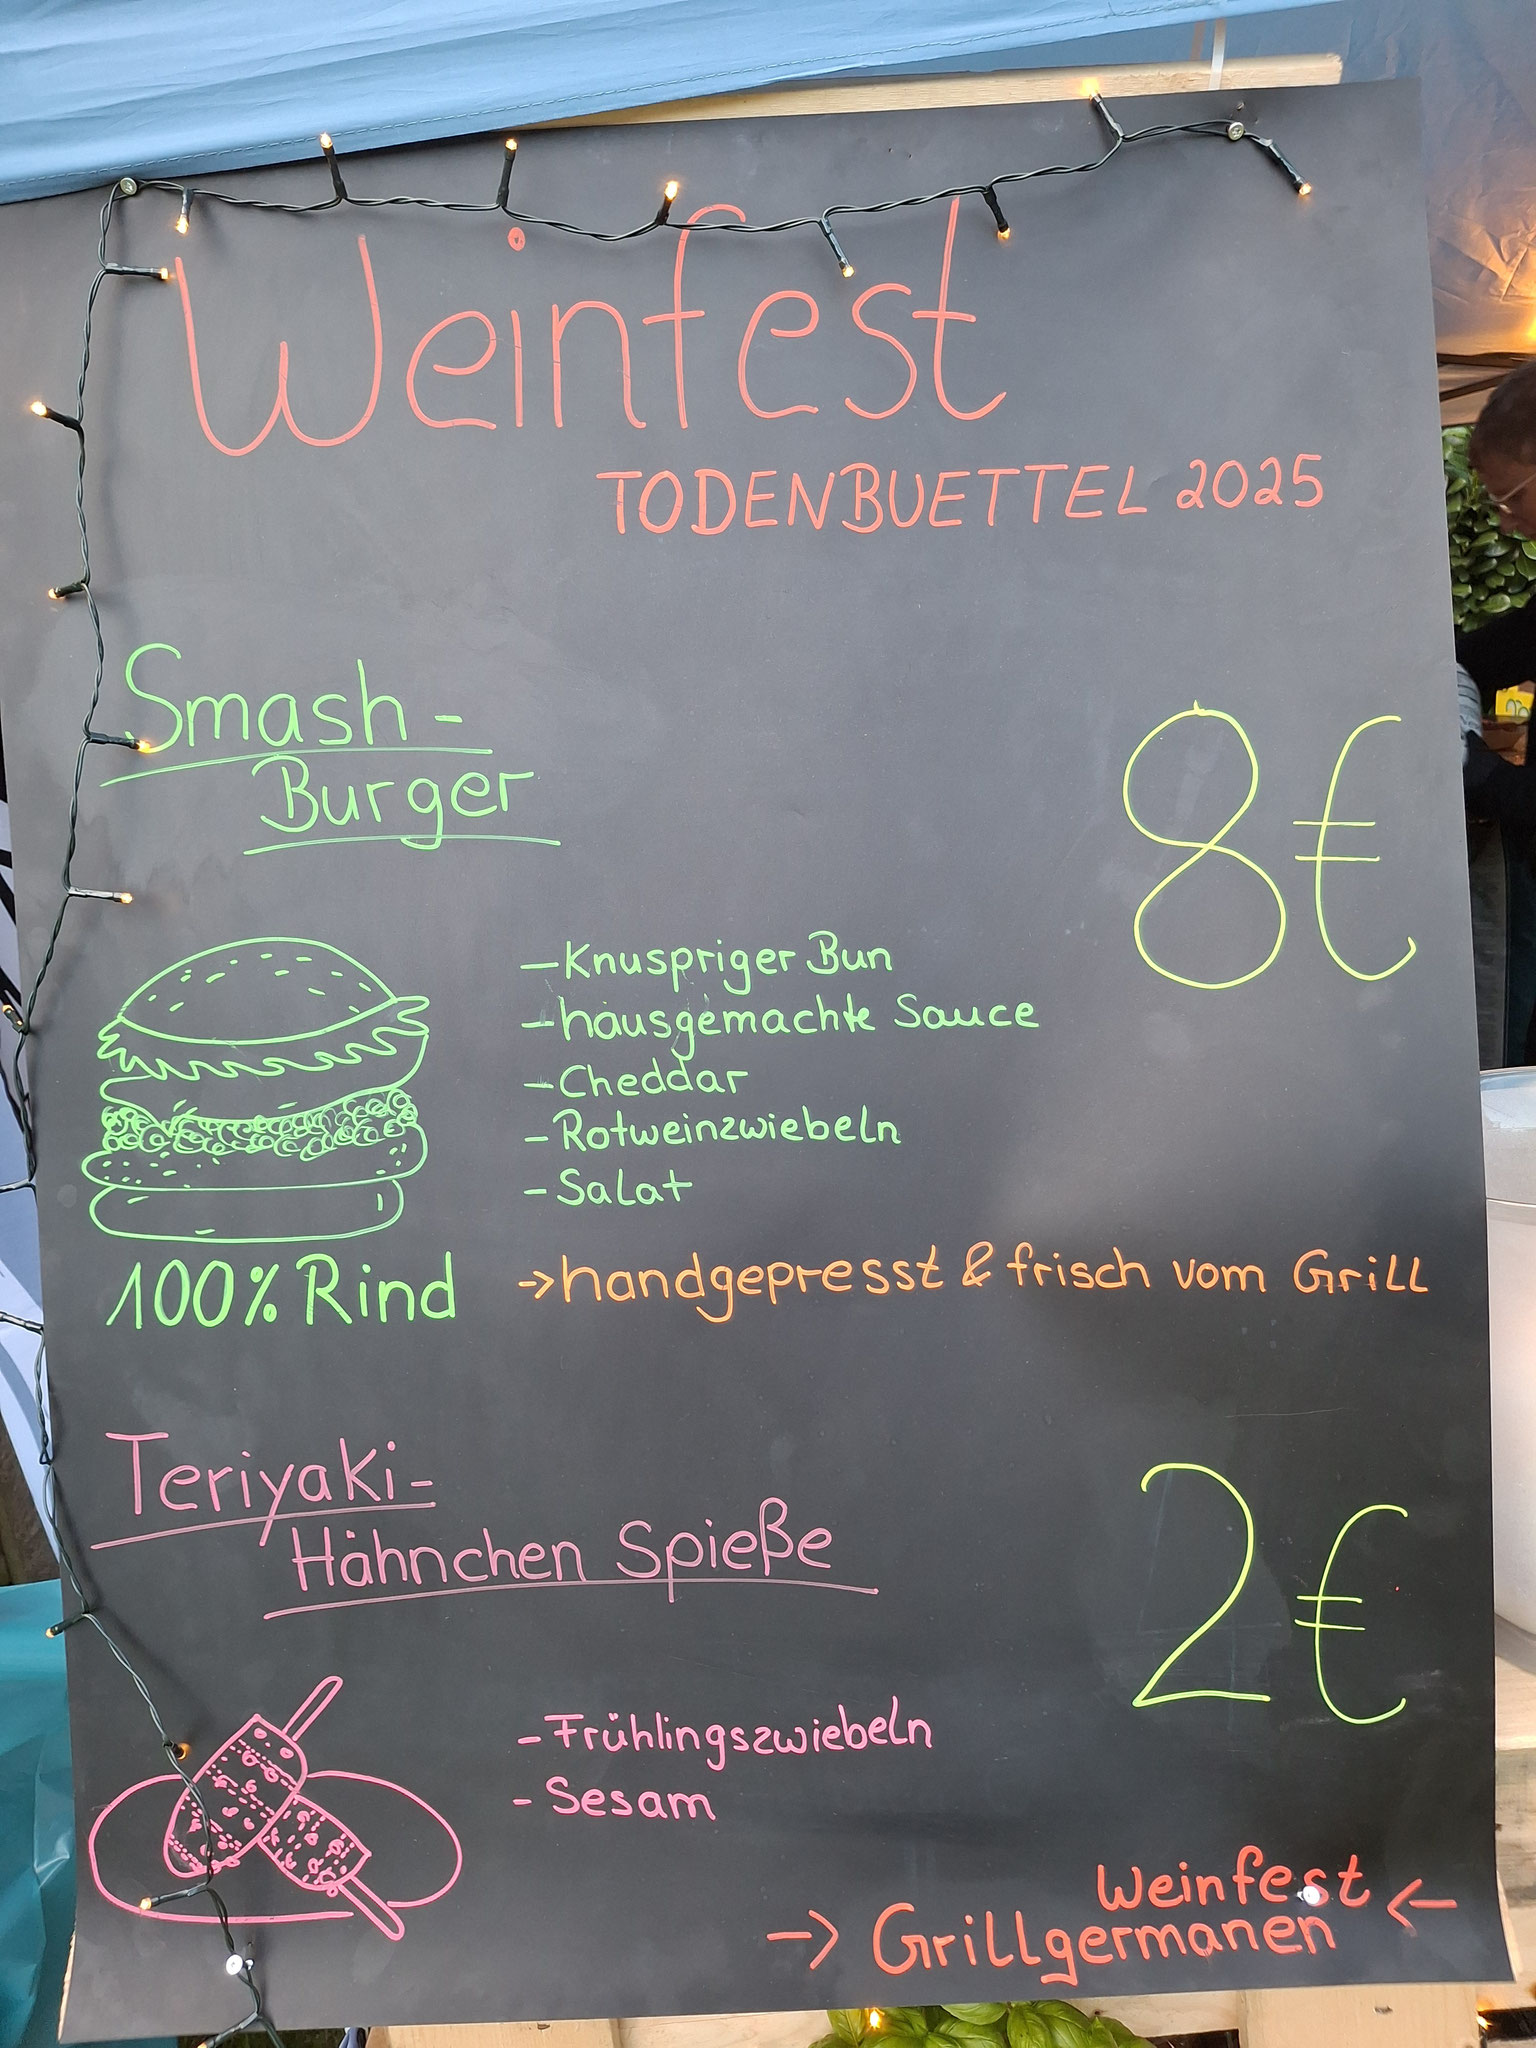 Weinfest
TODENBUETTEL 2025
Smash-
Burger
8€
- Knuspriger Bun
- hausgemachte Sauce
- Cheddar
- Rotweinzwiebeln
- Salat
100% Rind
→ handgepresst & frisch vom Grill
Teriyaki-
Hähnchen Spieße
2€
- Frühlingszwiebeln
- Sesam
Weinfest ←
→ Grillgermanen